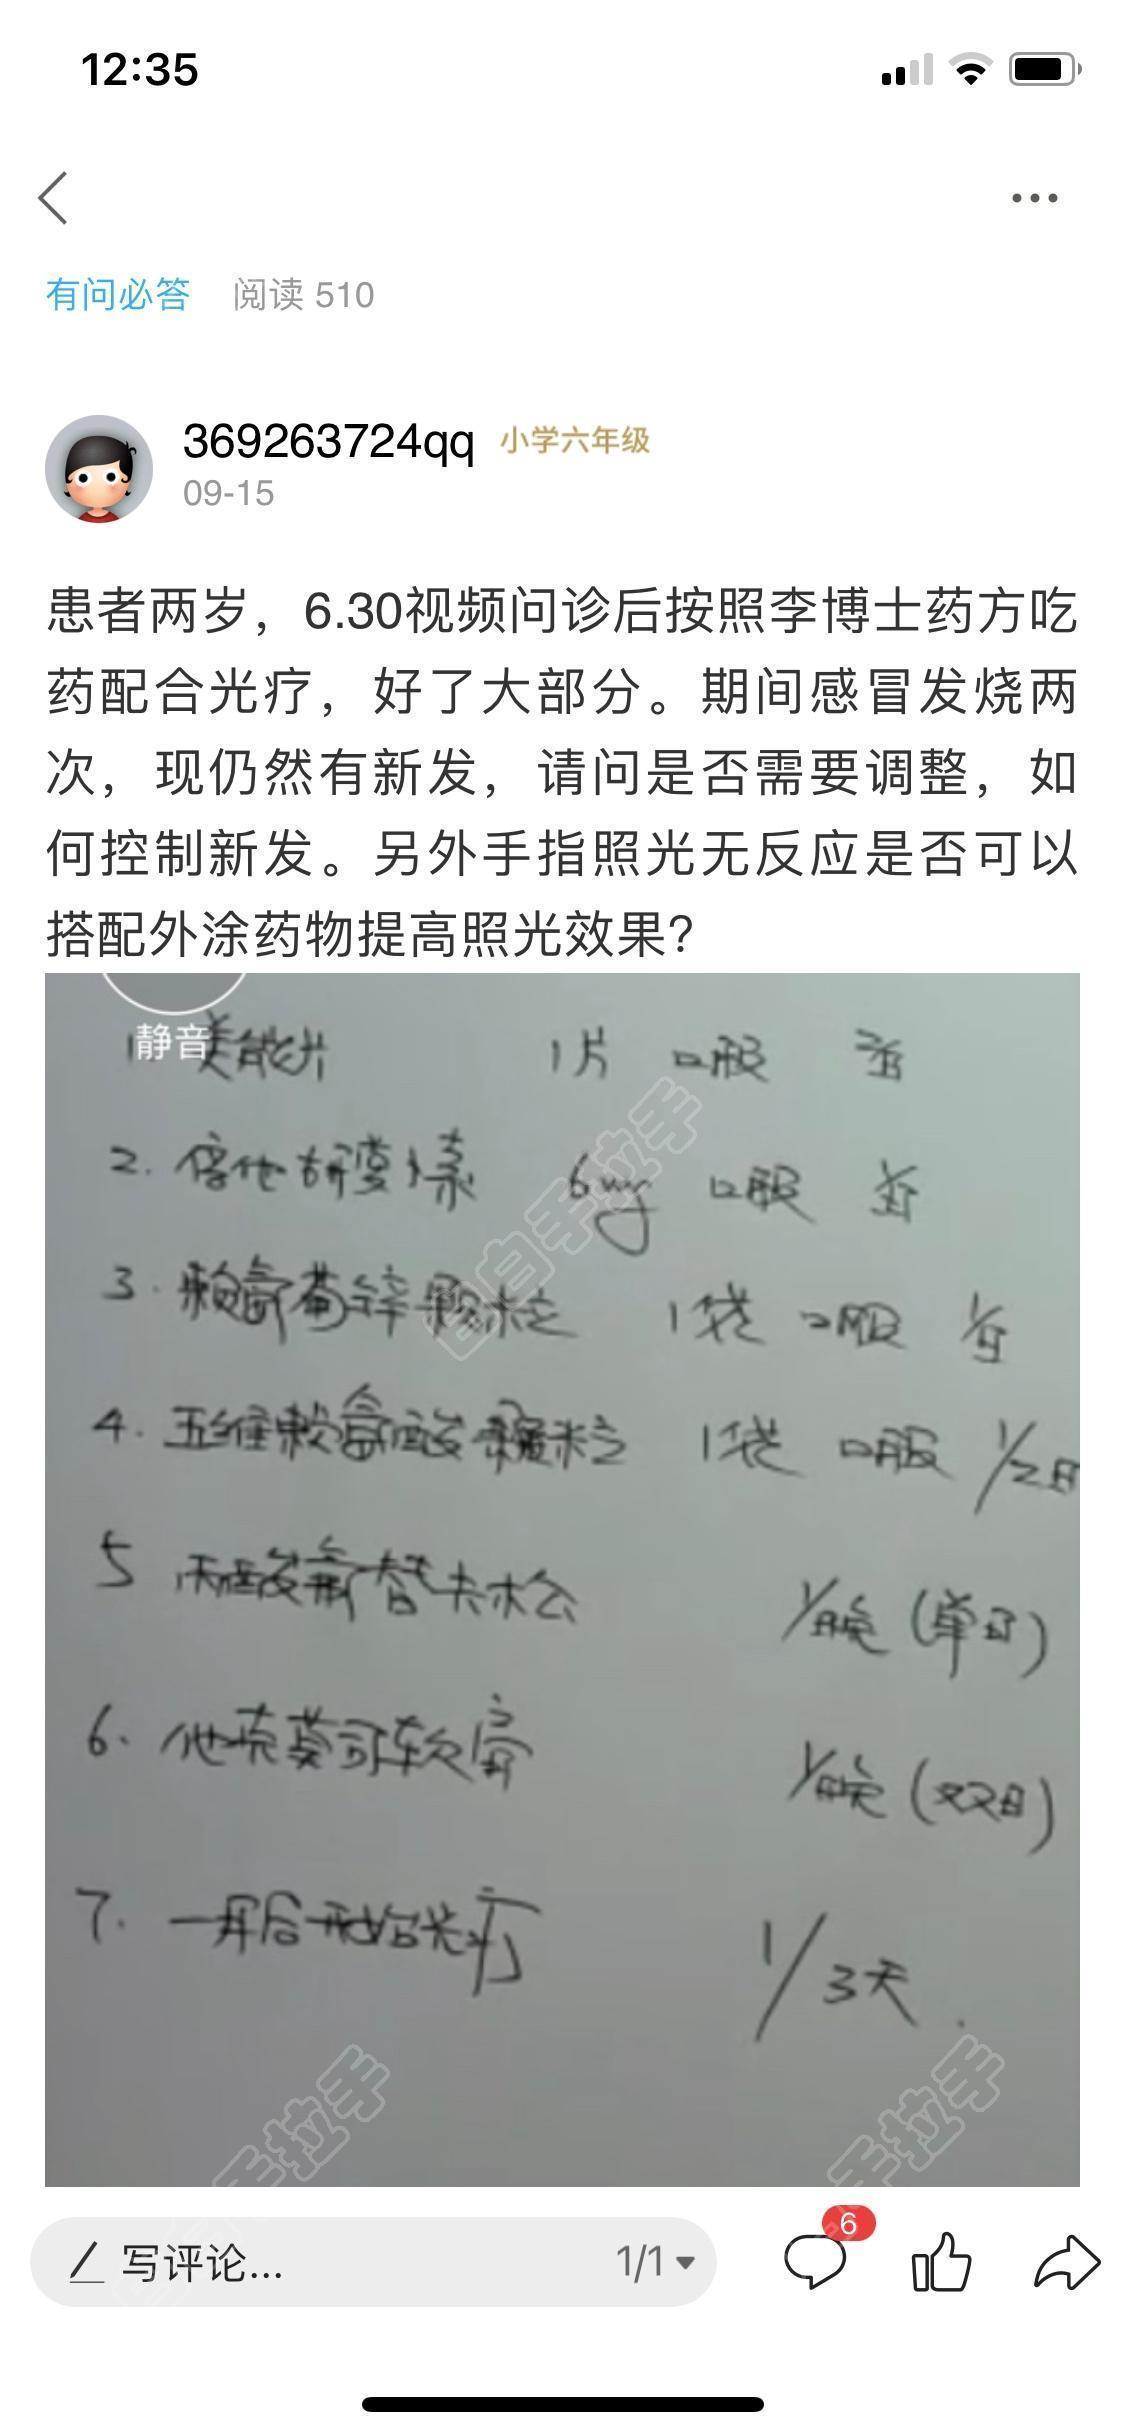 12:35
有问必答 阅读 510
369263724qq 小学六年级
09-15
患者两岁，6.30视频问诊后按照李博士药方吃
药配合光疗，好了大部分。期间感冒发烧两
次，现仍然有新发，请问是否需要调整，如
何控制新发。另外手指照光无反应是否可以
搭配外涂药物提高照光效果？
静音
1 美能片 1片 口服 2/日
2. 倍他胡萝卜素 6mg 口服 1/日
3. 赖氨葡锌颗粒 1袋 口服 1/日
4. 五维赖氨酸颗粒 1袋 口服 1/2日
5 丙酸氟替卡松 1/晚 (单日)
6. 他克莫司软膏 1/晚 (双日)
7. 一月后开始光疗 1/3天.
白手拉手
手拉手
手拉手
写评论... 1/1 6